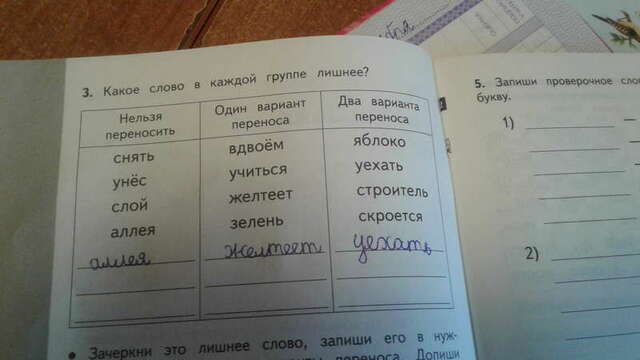 бря
3. Какое слово в каждой группе лишнее?
Нельзя переносить
Один вариант переноса
Два варианта переноса
снять вдвоём яблоко
унёс учиться уехать
слой желтеет строитель
аллея зелень скроется
аллея желтеет уехать
• Зачеркни это лишнее слово, запиши его в нуж-
переноса. Допиши
5. Запиши проверочное
букву.
1)
2)